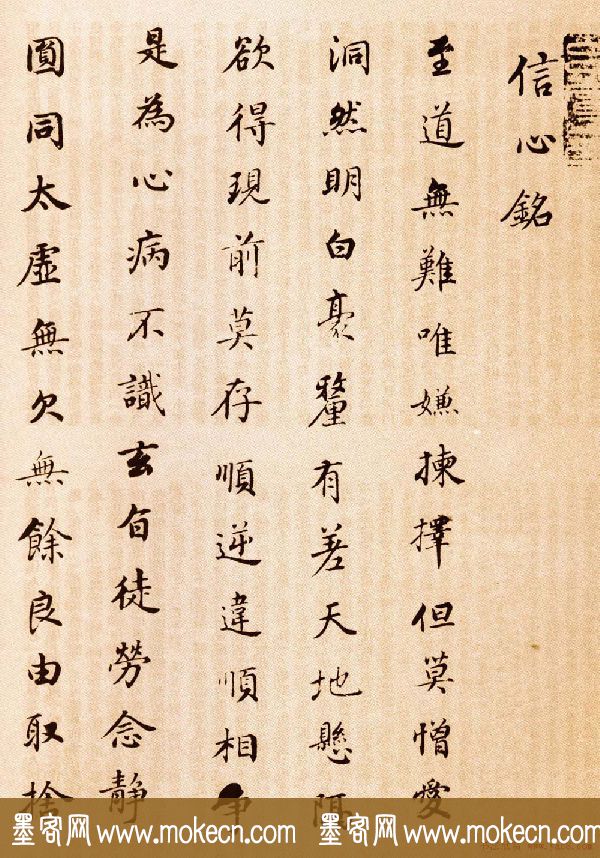 信心銘
至道無難唯嫌揀擇但莫憎愛
洞然明白豪釐有差天地懸隔
欲得現前莫存順逆違順相爭
是為心病不識玄旨徒勞念靜
圓同太虛無欠無餘良由取捨
墨客网 www.mokecn.com 墨客网 www.mokecn.com